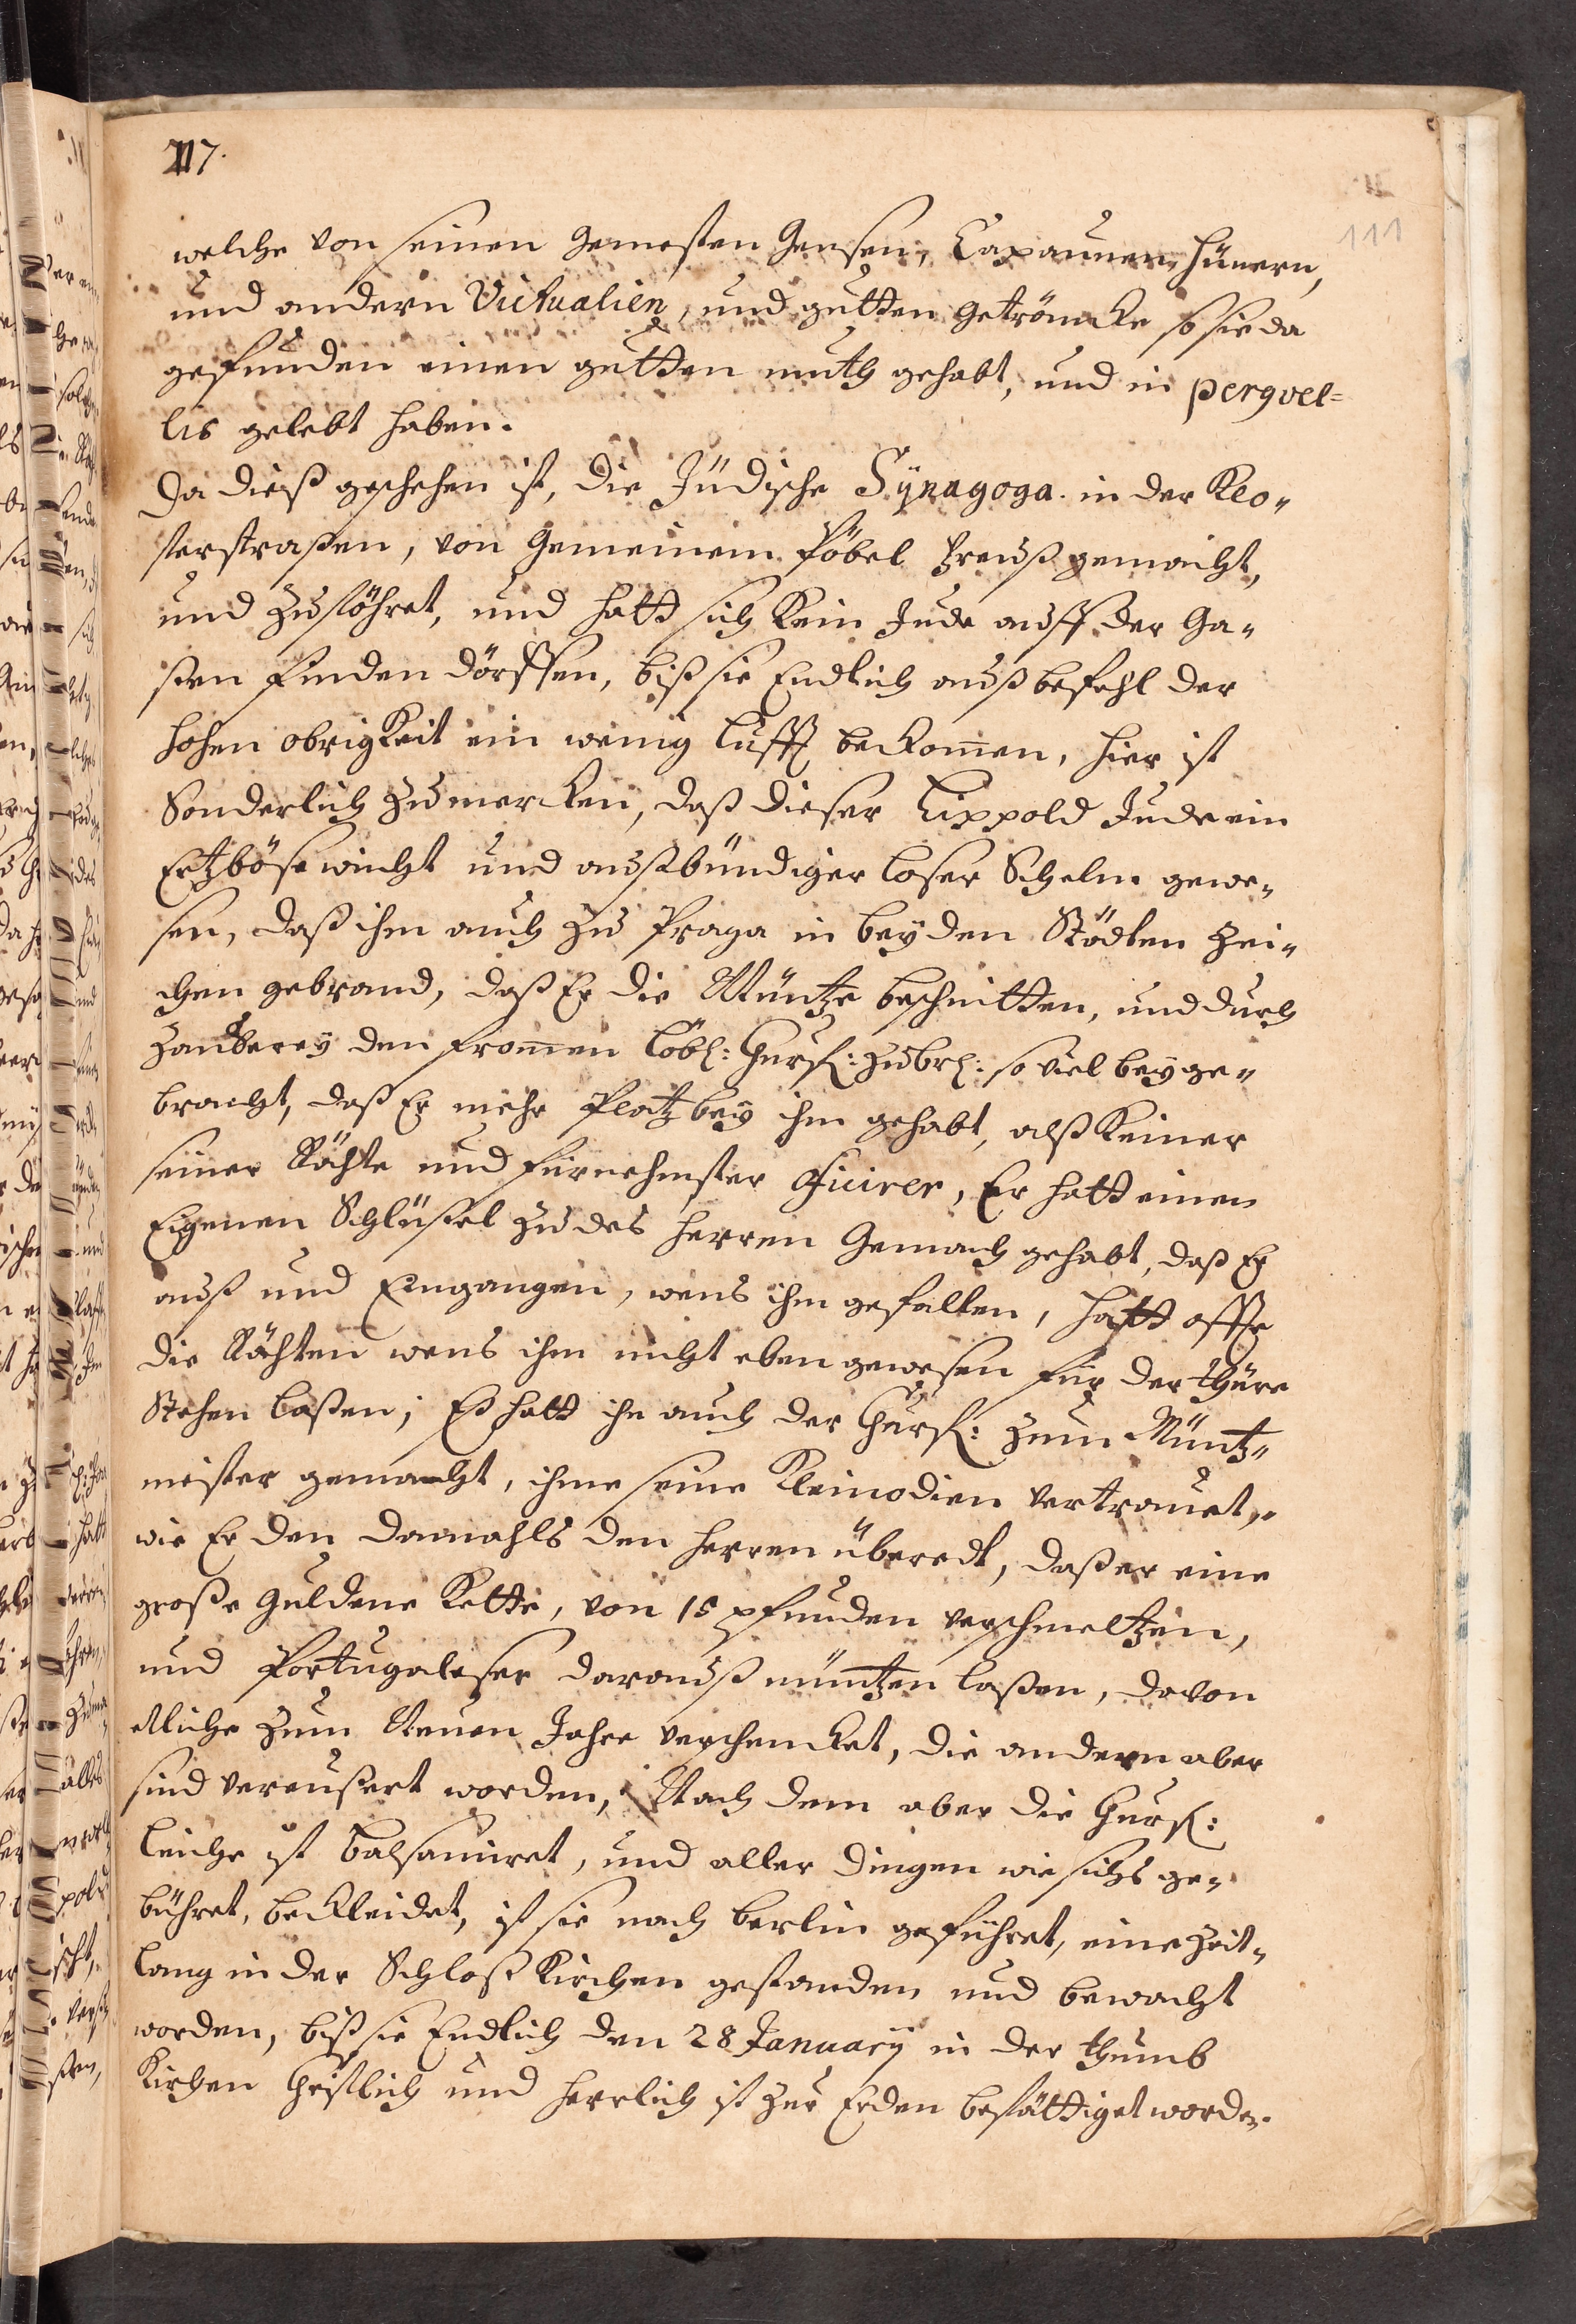 217.
111
welche von seinen gemesten Gensen, Capaunen, Hünern,
und andern Victualien, und gutten Getröncke so sie da
gefunden einen gutten muth gehabt, und in pergvel=
lis gelebt haben.
Da dieß geschehen ist, die Jüdische Sÿnagoga in der Klo„
sterstraßen, von gemeinem Pöbel Preiß gemacht,
und zustöhret, und hatt sich kein Jude auff der Ga„
ßen finden dörffen, biß sie Endlich auß befehl der
hohen obrigkeit ein wenig lufft bekom̄en, hier ist
Sonderlich zu mercken, daß dieser Lippold Jude ein
Ertzbösewicht und außbündiger loser Schelm gewe„
sen, daß ihm auch zu Praga in beÿden Städten Zei„
chen gebrand, daß Er die Müntze beschnitten, und durch
Zauberey den from̄en löbl: Churf: zu br: so viel beÿge„
bracht, daß Er mehr Platz beÿ ihm gehabt, alß keiner
seiner Rähte und fürnehmster Officirer, Er hatt einen
Eigenen Schlüßel zu des Herren Gemach gehabt, daß Er
auß und Eingangen, wens ihm gefallen, hatt offte
die Rähten wens ihm nicht eben gewesen für der thüre
Stehen laßen; Es hatt ihn auch der Churf: zum Müntz„
meister gemacht, ihme seine Kleinodien vertrauet,
wie Er den damahls den Herren überedt, daß er eine
große Guldene Kette, von 15 pfunden verschmeltzen,
und Portugaleser darauß müntzen laßen, davon
etliche zum Neuen Jahre verschencket, die andern aber
sind vereußert worden, Nach dem aber die Churf:
leiche ist balsamiret, und aller dingen wie sichs ge„
bühret, bekleidet, ist sie nach berlin geführet, eine Zeit„
lang in der Schloß Kirchen gestanden und bewacht
worden, biß sie Endlich den 28 Januarÿ in der thumb
Kirchen Christlich und herrlich ist zur Erden bestättiget worden.